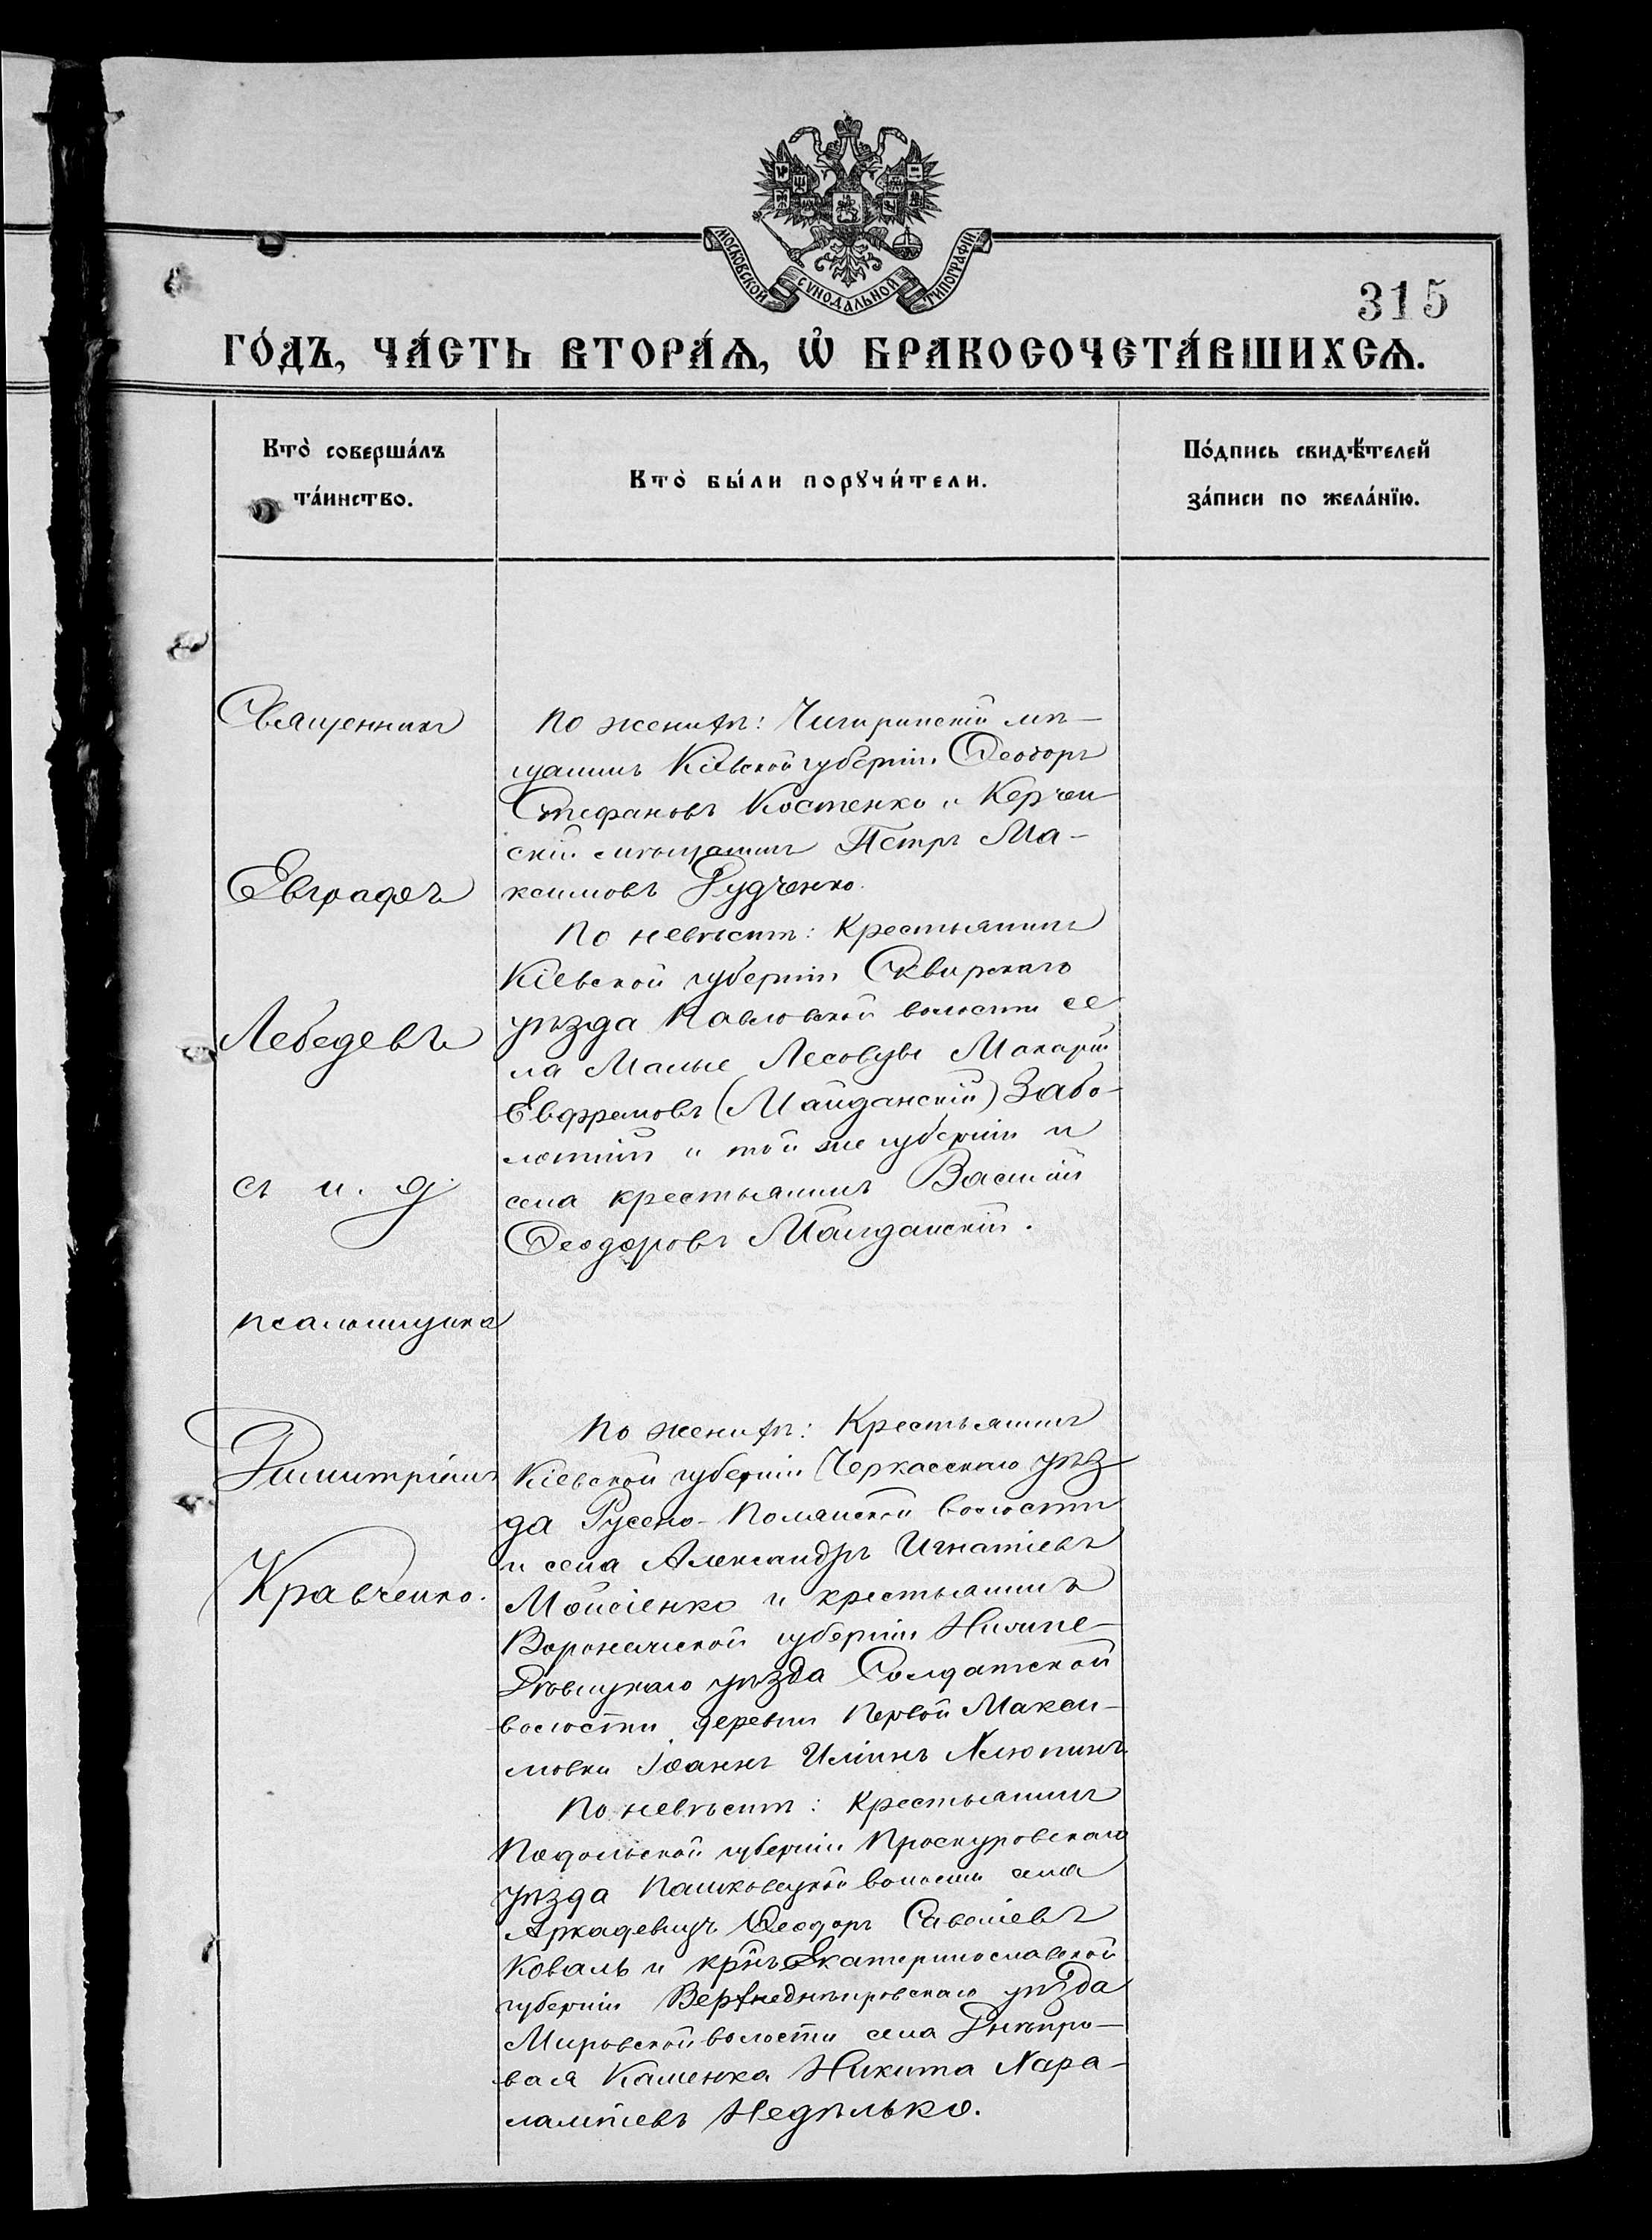 МОСКОВСКОЙ СѴНОДАЛЬНОЙ ТИПОГРАФІИ.
315
ГО́ДЪ, ЧА́СТЬ ВТОРА́Ѧ, Ѡ҆ БРАКОСОЧЕТА́ВШИХСѦ.
Кто̀ соверша́лъ
та́инство.
Кто̀ бы́ли порꙋчи́тели.
По́дпись свидѣ́телей
за́писи по жела́нїю.
Священникъ
Евграфъ
Лебедевъ
съ и. д.
псаломщика
Димитріемъ
Кравченко.
По женихѣ: Чигиринскій мѣ-
щанинъ Кіевской губерніи Ѳеодоръ
Стефановъ Костенко и Керчен-
скій мѣщанинъ Петръ Ма-
ксимовъ Рудченко.
По невѣстѣ: Крестьянинъ
Кіевской губерніи Сквирскаго
уѣзда Павловской волости се
ла Малые Лесовцы Макарій
Евфремовъ (Майданскій) Забо-
лотній и той же губерніи и
села крестьянинъ Василій
Ѳеодоровъ Майданскій.
По женихѣ: Крестьянинъ
Кіевской губерніи Черкасскаго уѣз-
да Русско-Полянской волости
и села Александръ Игнатіевъ
Мойсіенко и крестьянинъ
Воронежской губерніи Нижне-
Дѣвицкаго уѣзда Солдатской
волости деревни Первой Макси-
мовки Іоаннъ Иліинъ Хлюпинъ.
По невѣстѣ: Крестьянинъ
Подольской губерніи Проскуровскаго
уѣзда Пашковецкой волости села
Аркадевицъ Ѳеодоръ Савеліевъ
Коваль и кр̃нъ Екатеринославской
губерніи Верхнеднѣпровскаго уѣзда
Мировской волости села Днѣпро-
вая Каменка Никита Хара-
лампіевъ Недѣлько.